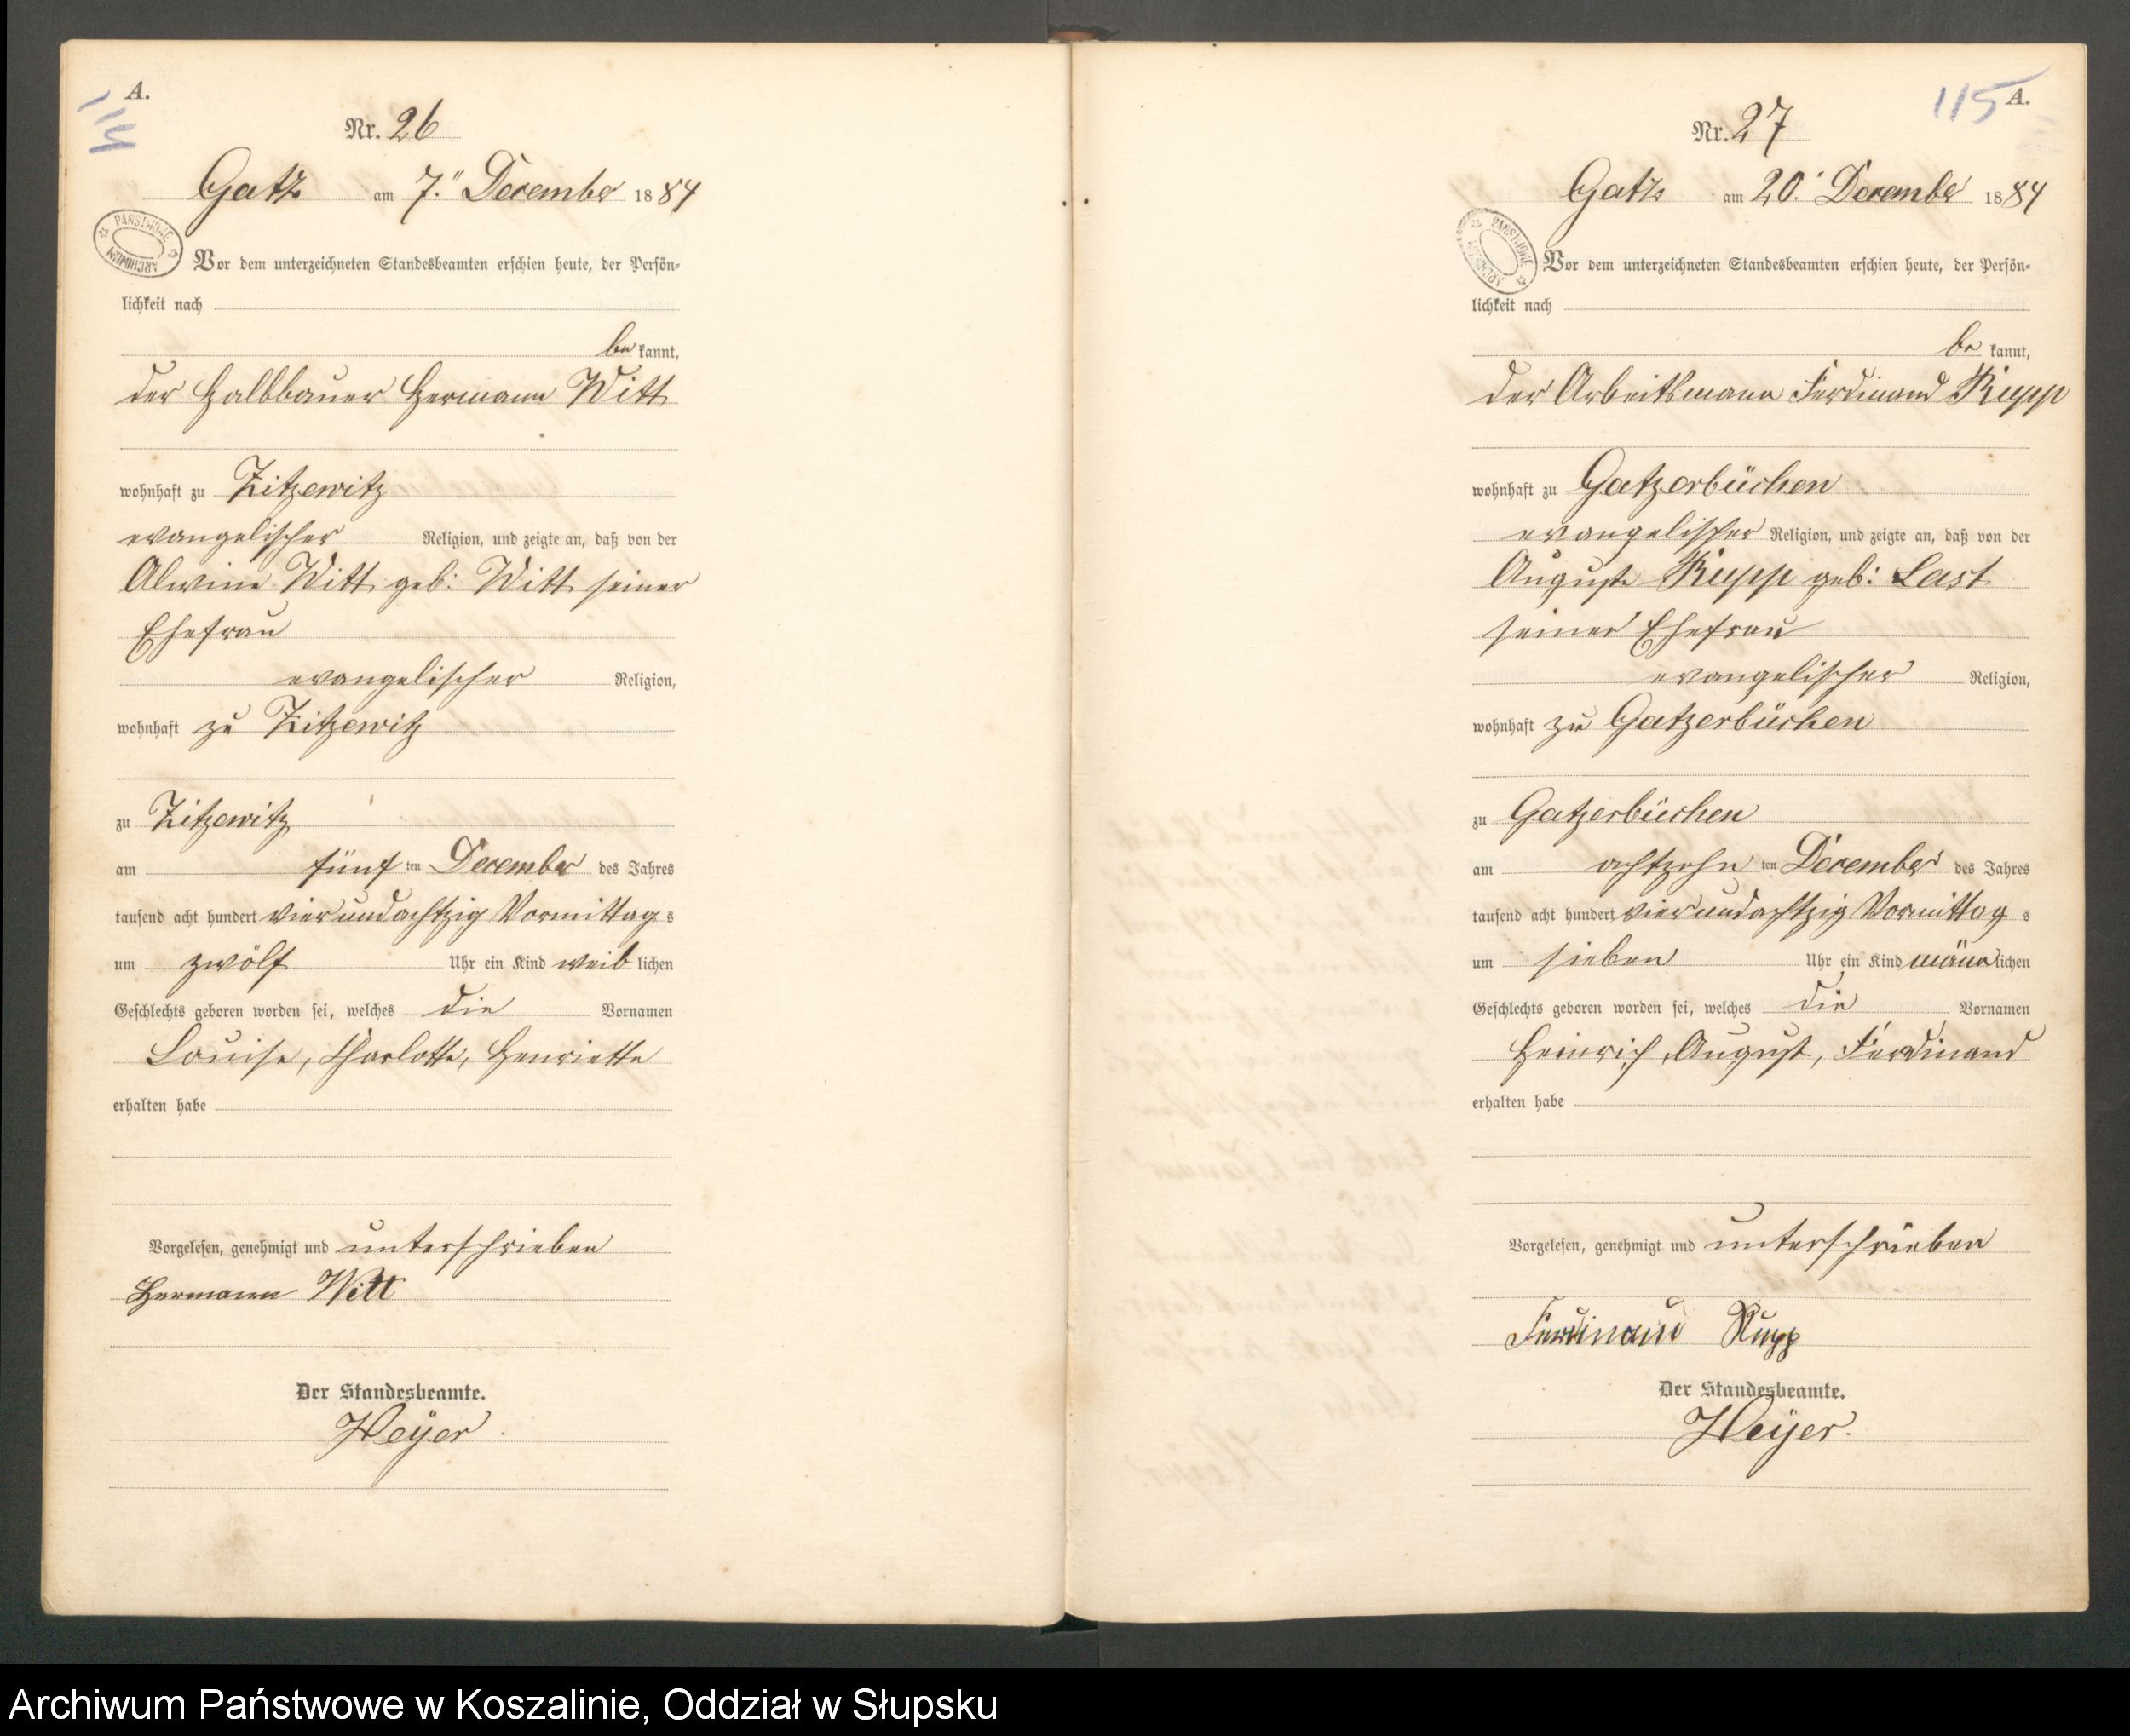 A.
114
Nr. 26
Gatz am 7. December 1884
PAŃSTWOWE ARCHIWUM
Vor dem unterzeichneten Standesbeamten erschien heute, der Persön-
lichkeit nach
be kannt,
der Halbbauer Hermann Witt
wohnhaft zu Zitzewitz
evangelischer Religion, und zeigte an, daß von der
Alwine Witt geb: Witt seiner
Ehefrau
evangelischer Religion,
wohnhaft zu Zitzewitz
zu Zitzewitz
am fünf ten December des Jahres
tausend acht hundert vierundachtzig Vormittag s
um zwölf Uhr ein Kind weib lichen
Geschlechts geboren worden sei, welches die Vornamen
Louise, Charlotte, Henriette
erhalten habe
Vorgelesen, genehmigt und unterschrieben
Hermann Witt
Der Standesbeamte.
Heÿer.
115 A.
Nr. 27
Gatz am 20. December 1884
PAŃSTWOWE ARCHIWUM
Vor dem unterzeichneten Standesbeamten erschien heute, der Persön-
lichkeit nach
be kannt,
der Arbeitsmann Ferdinand Rupp
wohnhaft zu Gatzerbüchen
evangelischer Religion, und zeigte an, daß von der
Auguste Rupp geb: Last
seiner Ehefrau
evangelischer Religion,
wohnhaft zu Gatzerbüchen
zu Gatzerbüchen
am achtzehn ten December des Jahres
tausend acht hundert vierundachtzig Vormittag s
um sieben Uhr ein Kind männ lichen
Geschlechts geboren worden sei, welches die Vornamen
Heinrich, August, Ferdinand
erhalten habe
Vorgelesen, genehmigt und unterschrieben
Ferdinand Rupp
Der Standesbeamte.
Heÿer.
Archiwum Państwowe w Koszalinie, Oddział w Słupsku